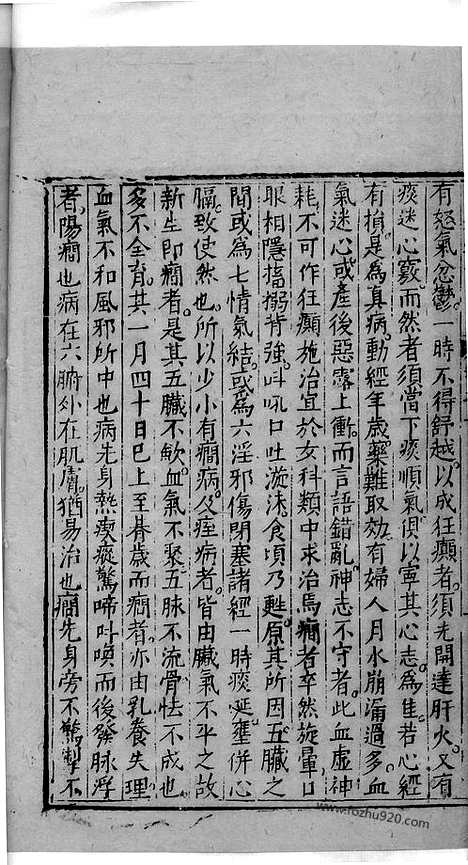 有怒氣忿鬱一時不得舒越以成狂癲者須先開達肝火又有
痰迷心竅而然者須當下痰順氣俱以寧其心志為佳若心經
有損是為真病動經年歲藥難取効有婦人月水崩漏過多血
氣迷心或產後惡露上衝而言語錯亂神志不守者此血虛神
耗不可作狂癲施治宜於女科類中求治焉癇者卒然旋暈口
眼相隱搐搦背強叫吼口吐涎沫食頃乃甦原其所因五臟之
間或為七情氣結或為六淫邪傷閉塞諸經一時痰涎壅併心
膈致使然也所以少小有癇病及痓病者皆由臟氣不平之故
新生即癇者是其五臟不歛血氣不聚五脉不流骨怯不成也
多不全育其一月四十日已上至朞歲而癇者亦由乳養失理
血氣不和風邪所中也病先身熱瘈瘲驚啼叫喚而後發脉浮
者陽癇也病在六腑外在肌膚猶易治也癇先身旁不驚掣不
www.fozhu920.com